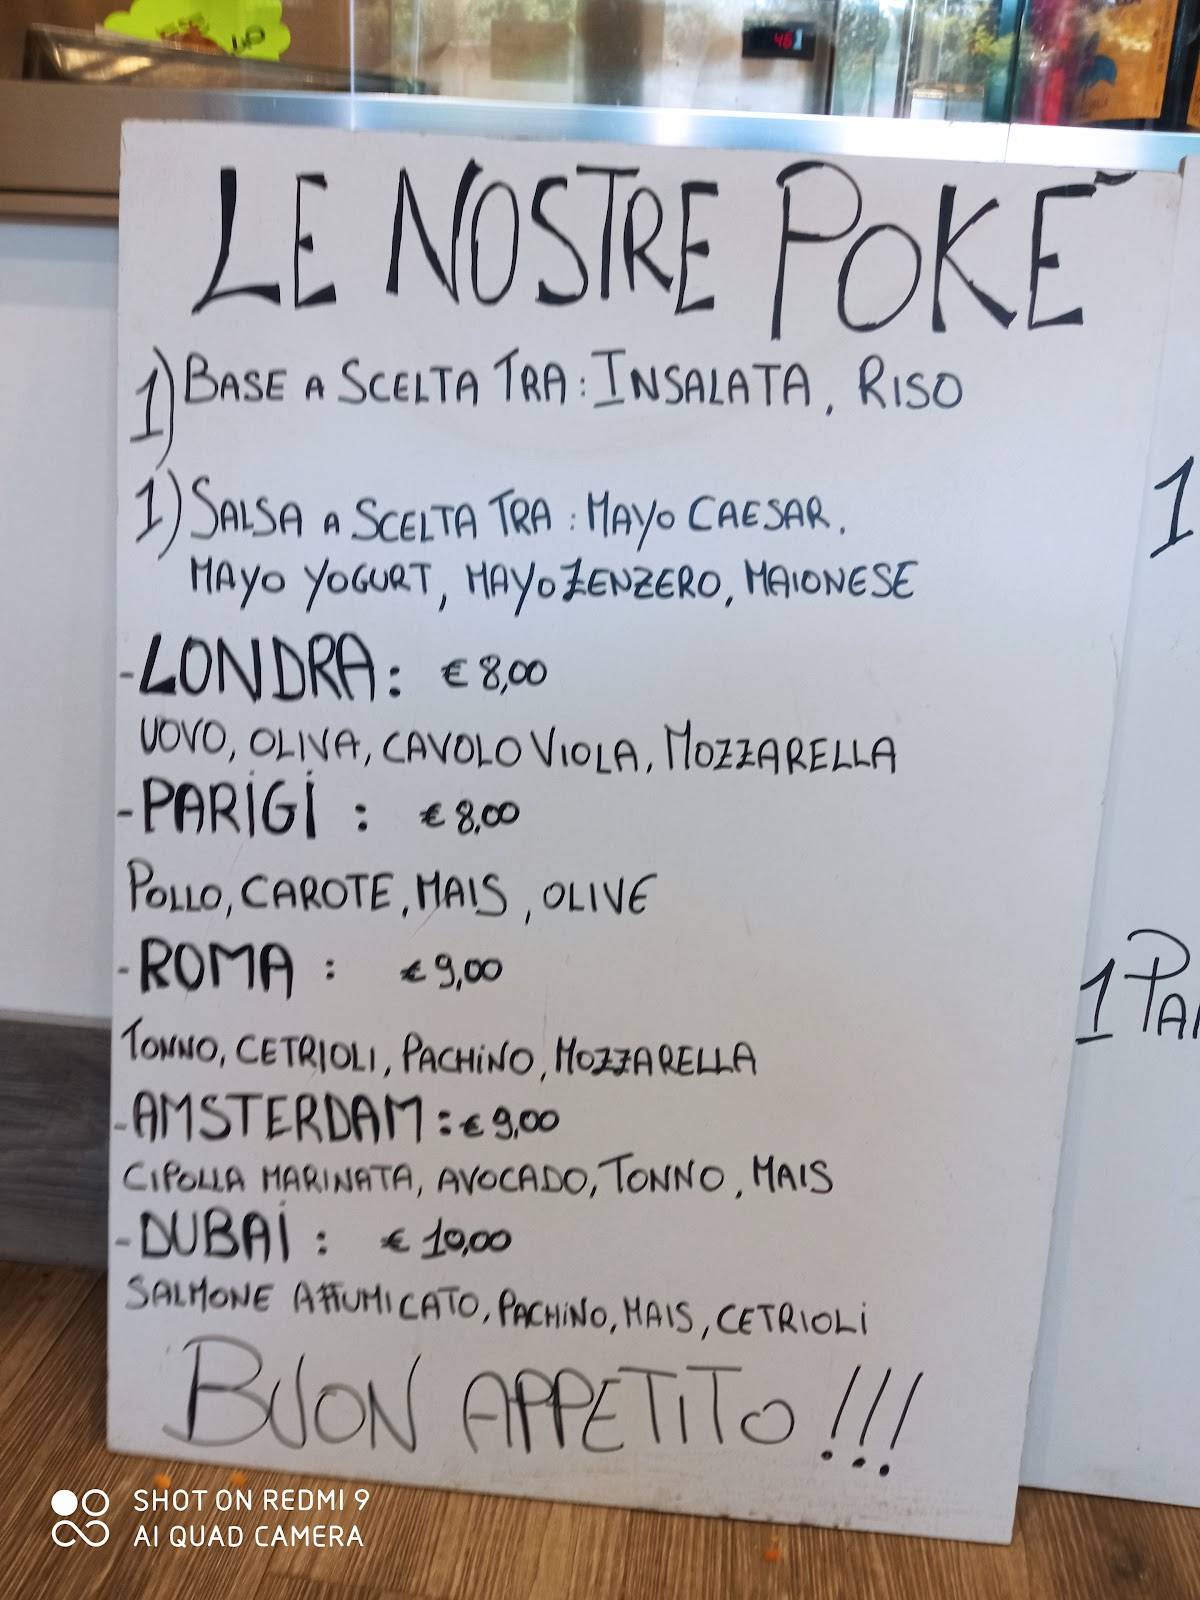 LE NOSTRE POKÈ
1) BASE A SCELTA TRA: INSALATA, RISO
1) SALSA A SCELTA TRA: MAYO CAESAR,
MAYO YOGURT, MAYO ZENZERO, MAIONESE
-LONDRA: € 8,00
UOVO, OLIVA, CAVOLO VIOLA, MOZZARELLA
-PARIGI: € 8,00
POLLO, CAROTE, MAIS, OLIVE
-ROMA: € 9,00
TONNO, CETRIOLI, PACHINO, MOZZARELLA
-AMSTERDAM: € 9,00
CIPOLLA MARINATA, AVOCADO, TONNO, MAIS
-DUBAI: € 10,00
SALMONE AFFUMICATO, PACHINO, MAIS, CETRIOLI
BUON APPETITO!!!
1
1 PA
SHOT ON REDMI 9
AI QUAD CAMERA